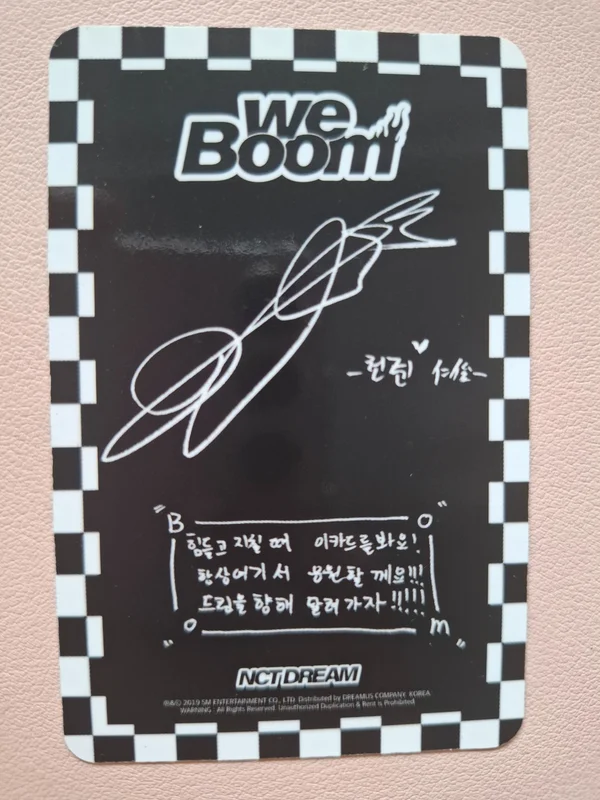 we
Boom
-런쥔
"B
O"
힘들고 지칠 때 이카드를 봐요!
항상여기서 응원할께요!!!
드림을 향해 달려가자!!!!!
"O
m"
NCT DREAM
℗&© 2019 SM ENTERTAINMENT CO., LTD. Distributed by DREAMUS COMPANY. KOREA
WARNING : All Rights Reserved. Unauthorized Duplication & Rent is Prohibited.